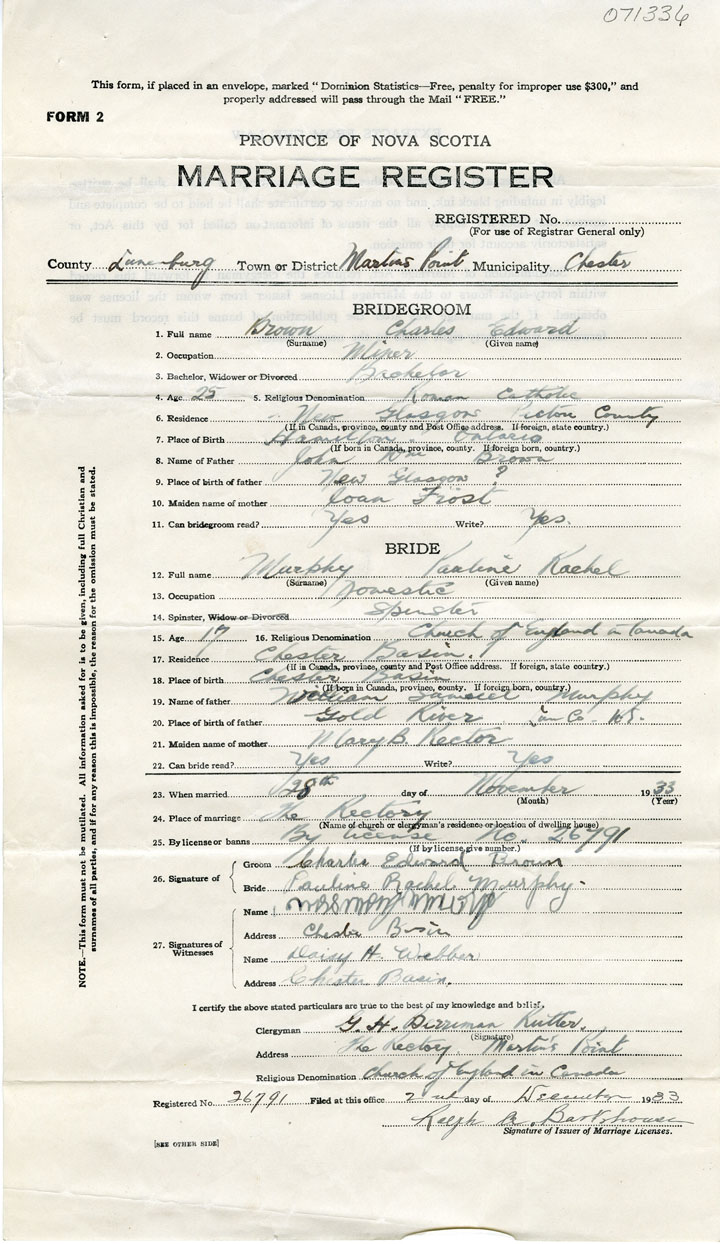 071336
This form, if placed in an envelope, marked "Dominion Statistics—Free, penalty for improper use $300," and
properly addressed will pass through the Mail "FREE."
FORM 2
PROVINCE OF NOVA SCOTIA
MARRIAGE REGISTER
REGISTERED No.
(For use of Registrar General only)
County Lunenburg Town or District Martins Point Municipality Chester
BRIDEGROOM
1. Full name Brown Charles Edward
(Surname) (Given name)
2. Occupation Miner
3. Bachelor, Widower or Divorced Bachelor
4. Age 25 5. Religious Denomination Roman Catholic
6. Residence New Glasgow Pictou County
(If in Canada, province, county and Post Office address. If foreign, state country.)
7. Place of Birth Hamilton Ontario
(If born in Canada, province, county. If foreign born, country.)
8. Name of Father John Wm Brown
9. Place of birth of father New Glasgow ?
10. Maiden name of mother Joan Frost
11. Can bridegroom read? Yes Write? Yes.
BRIDE
12. Full name Murphy Pauline Rachel
(Surname) (Given name)
13. Occupation Domestic
14. Spinster, Widow or Divorced Spinster
15. Age 17 16. Religious Denomination Church of England in Canada
17. Residence Chester Basin.
(If in Canada, province, county and Post Office address. If foreign, state country.)
18. Place of birth Chester Basin
(If born in Canada, province, county. If foreign born, country.)
19. Name of father William Murphy
20. Place of birth of father Gold River Lun Co. N.S.
21. Maiden name of mother Mary B. Rector
22. Can bride read? Yes Write? Yes
23. When married 28th day of November 1933
(Month) (Year)
24. Place of marriage The Rectory
(Name of church or clergyman's residence or location of dwelling house)
25. By license or banns By License No. 26791
(If by license, give number.)
26. Signature of
Groom Charles Edward Brown
Bride Pauline Rachel Murphy.
27. Signatures of Witnesses
Name
Address Chester Basin
Name Daisy H. Webber
Address Chester Basin.
I certify the above stated particulars are true to the best of my knowledge and belief.
Clergyman G. H. Berriman Rutter.
(Signature)
Address The Rectory, Martin's Point
Religious Denomination Church of England in Canada
Registered No. 26791 Filed at this office 2nd day of December 1933
Ralph Barkhouse
Signature of Issuer of Marriage Licenses.
[SEE OTHER SIDE]
NOTE.—This form must not be mutilated. All information asked for is to be given, including full Christian and
surnames of all parties, and if for any reason this is impossible, the reason for the omission must be stated.